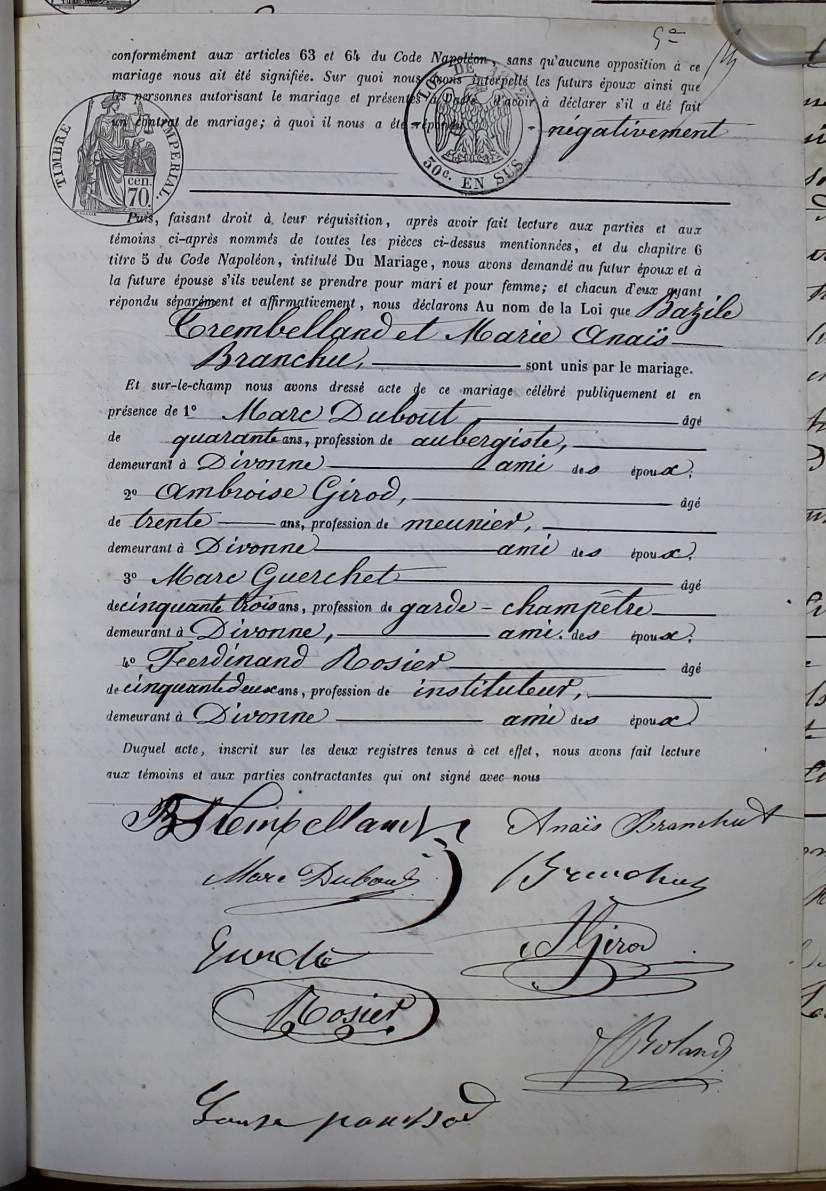 5e
conformément aux articles 63 et 64 du Code Napoléon, sans qu'aucune opposition à ce
mariage nous ait été signifiée. Sur quoi nous avons interpellé les futurs époux ainsi que
les personnes autorisant le mariage et présentes à l'acte d'avoir à déclarer s'il a été fait
un contrat de mariage; à quoi il nous a été répondu négativement
TIMBRE IMPERIAL.
cen.
70.
LOI DE 1862
50c. EN SUS
Puis, faisant droit à leur réquisition, après avoir fait lecture aux parties et aux
témoins ci-après nommés de toutes les pièces ci-dessus mentionnées, et du chapitre 6
titre 5 du Code Napoléon, intitulé Du Mariage, nous avons demandé au futur époux et à
la future épouse s'ils veulent se prendre pour mari et pour femme; et chacun d'eux ayant
répondu séparément et affirmativement, nous déclarons Au nom de la Loi que Bazile
Trembelland et Marie Anaïs
Branchu, sont unis par le mariage.
Et sur-le-champ nous avons dressé acte de ce mariage célébré publiquement et en
présence de 1o Marc Dubout, âgé
de quarante ans, profession de aubergiste,
demeurant à Divonne ami des époux;
2o Ambroise Girod, âgé
de trente ans, profession de meunier,
demeurant à Divonne ami des époux;
3o Marc Guerchet âgé
de cinquante trois ans, profession de garde-champêtre
demeurant à Divonne, ami des époux;
4o Ferdinand Rosier âgé
de cinquante deux ans, profession de instituteur,
demeurant à Divonne ami des époux.
Duquel acte, inscrit sur les deux registres tenus à cet effet, nous avons fait lecture
aux témoins et aux parties contractantes qui ont signé avec nous
B Trembelland Anaïs Branchut
Marc Dubout
Girod
Rosier
Roland